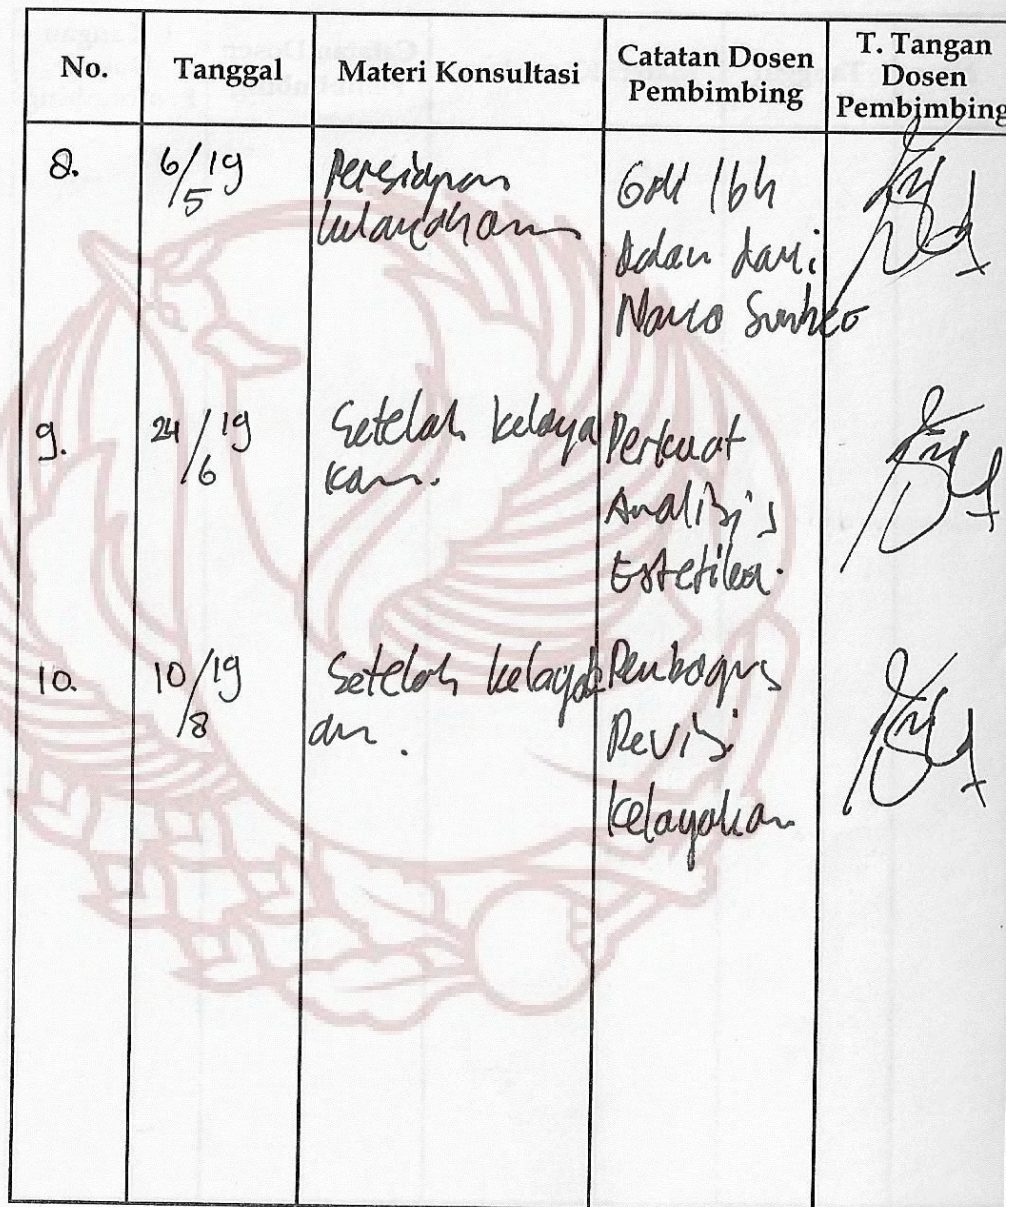 No. Tanggal Materi Konsultasi Catatan Dosen Pembimbing T. Tangan Dosen Pembimbing
8. 6/5 19 Persiapan
dari
9. 24/6 19 Setelah kelaya
kan. Perkuat
Analisis
Estetika.
10. 10/8 19 Setelah kelayak
an. Penbagus
Revisi
kelayakan